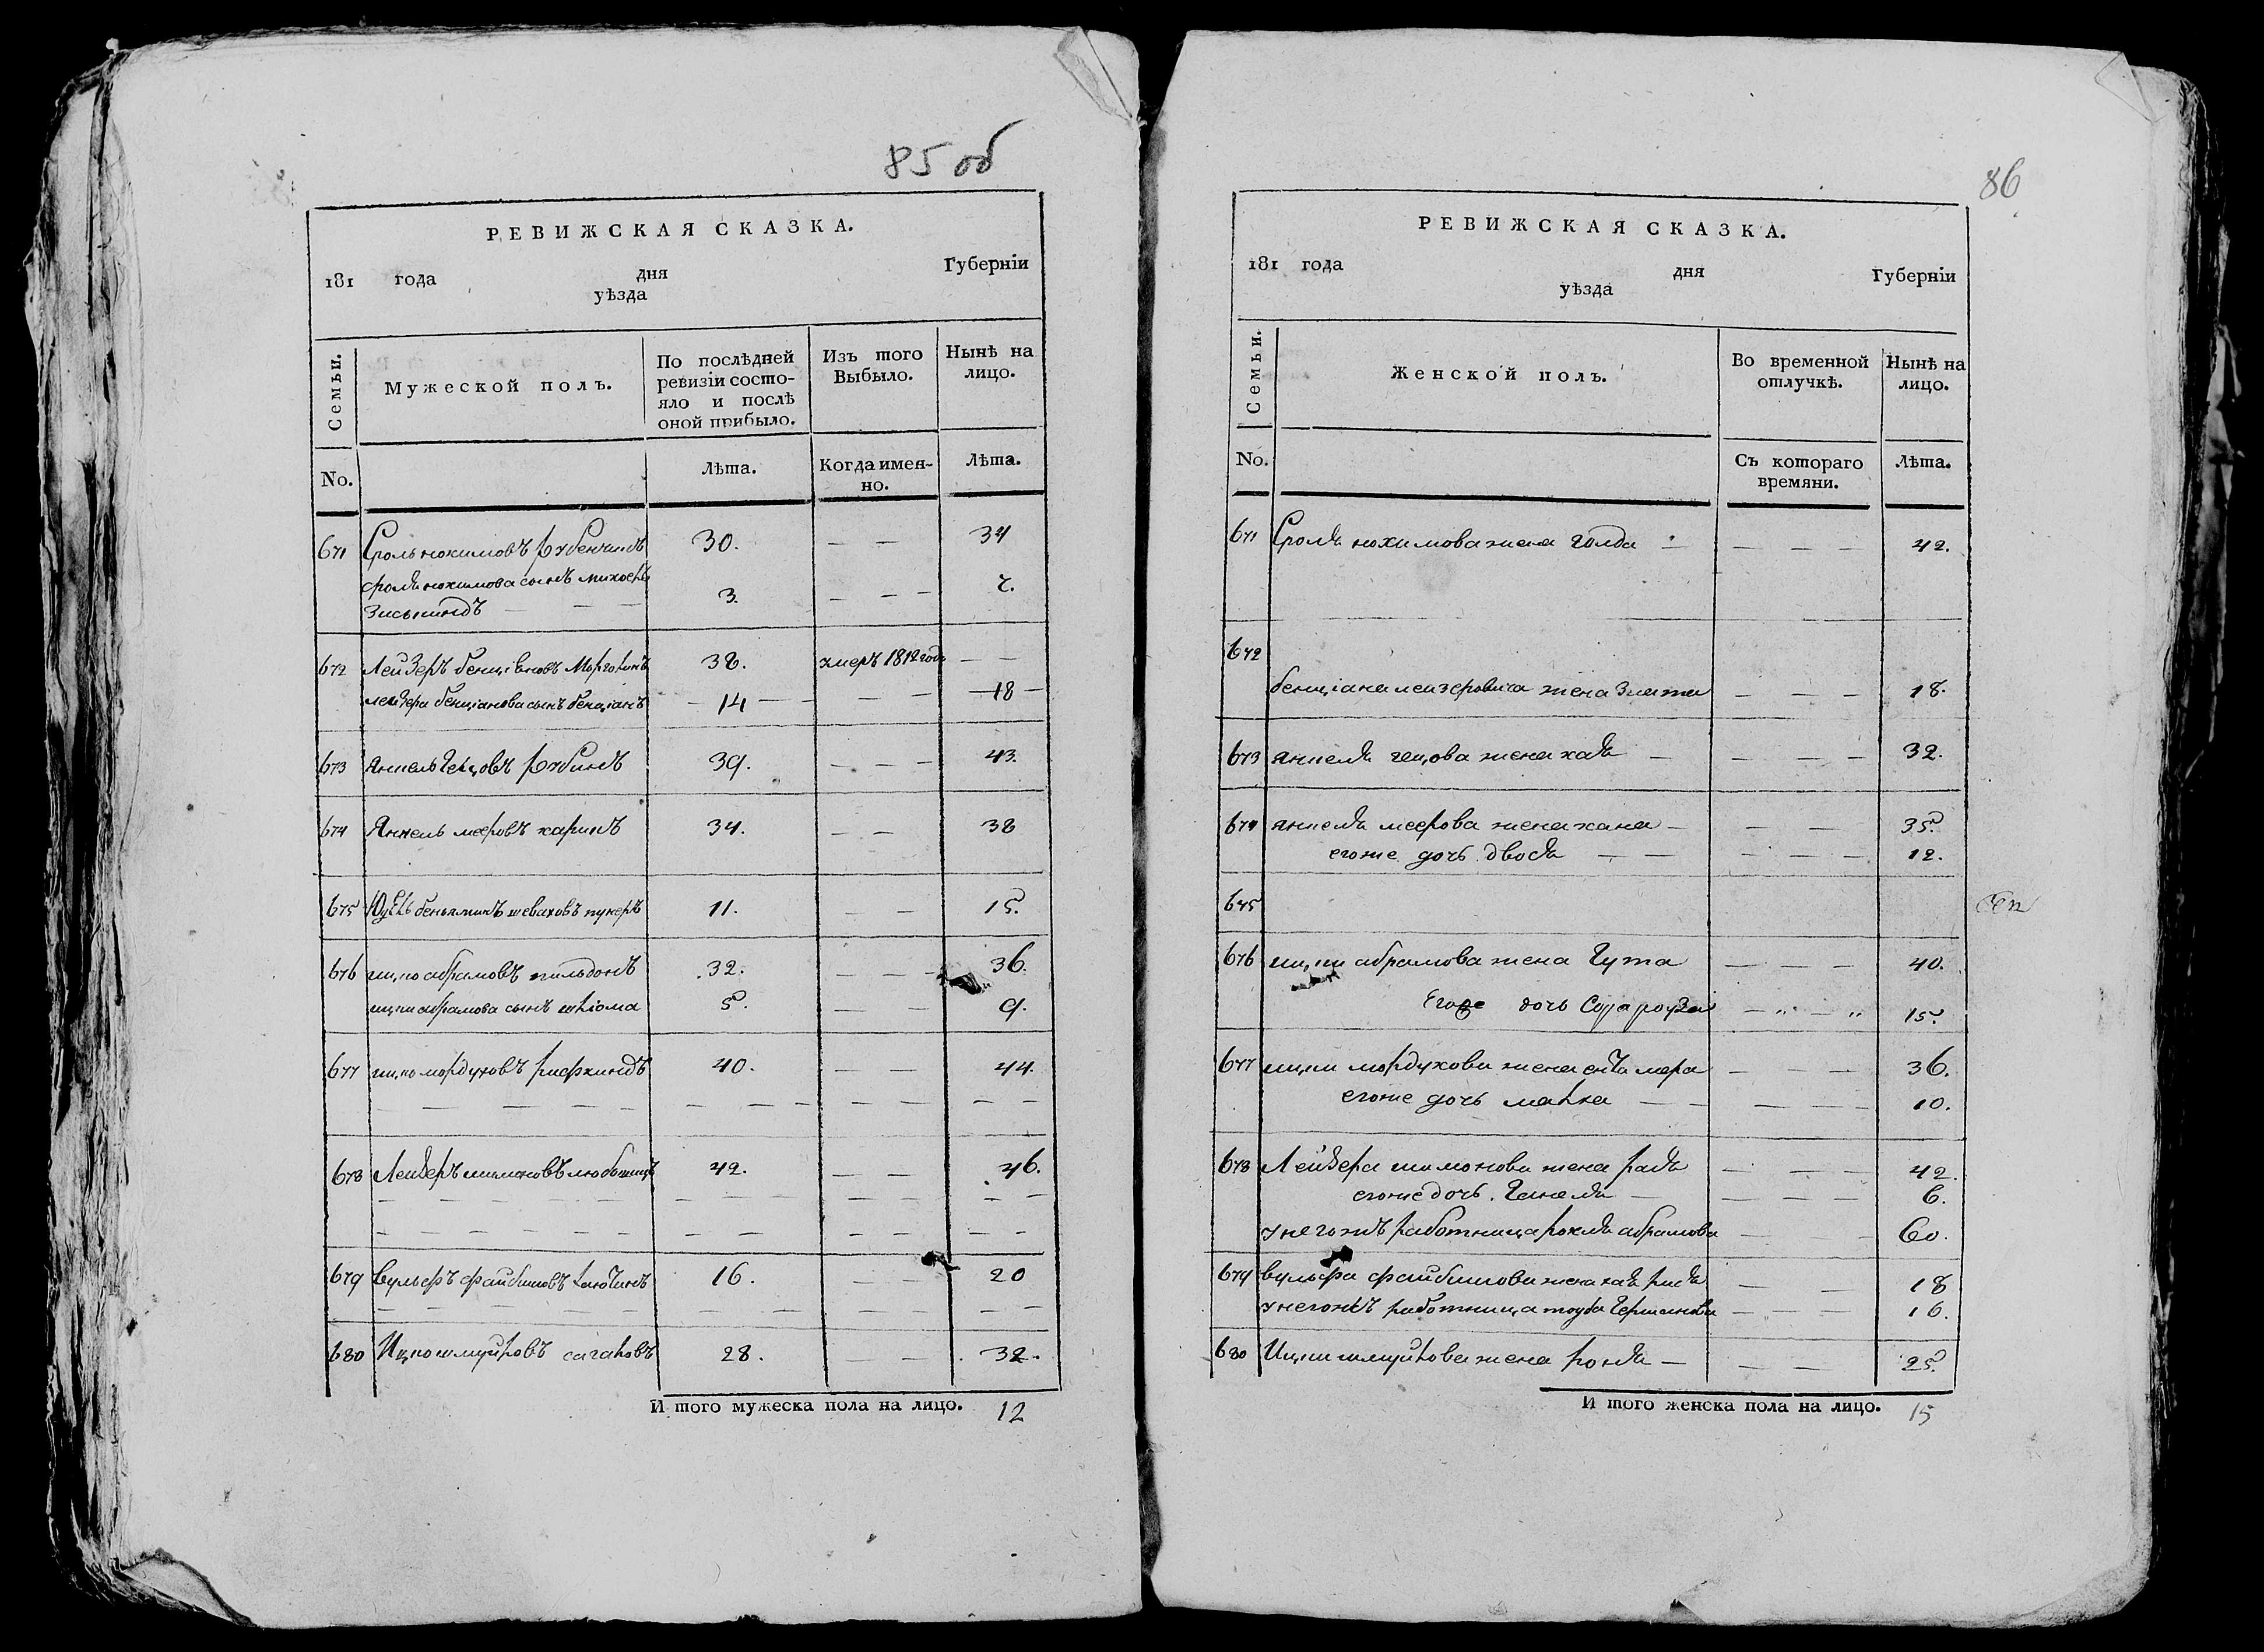 85 об
РЕВИЖСКАЯ СКАЗКА.
181 года дня Губерніи
уѣзда
Семьи.
Мужеской полъ.
По послѣдней ревизіи состо-
яло и послѣ
оной прибыло.
Изъ того
Выбыло.
Нынѣ на
лицо.
No.
Лѣта.
Когда имен-
но.
Лѣта.
671 Сроль нохимовъ рубенчикъ 30. — — 34
сроля нохимова сынъ
Зиськиндъ — — — 3. — — — 7.
672 Лейзеръ бенціановъ 38. умеръ 1812 года — —
лейзера бенціанова сынъ бенціанъ — 14 — — — — 18 —
673 Янкель Гецовъ рубинъ 39. — — — 43.
674 Янкель мееровъ каринъ 34. — — 38
675 беньяминъ шеваховъ 11. — — 15.
676 ицко абрамовъ 32. — — — 36.
ицки абрамова сынъ шліома 5. — — 9.
677 ицко мордуховъ рифкиндъ 40. — — 44.
678 Лейзеръ шимоновъ 42. — — 46.
679 вульфъ файбишовъ 16. — — 20
680 Ицко шмуйловъ 28. — — 32.
И того мужеска пола на лицо. 12
86
РЕВИЖСКАЯ СКАЗКА.
181 года дня Губерніи
уѣзда
Семьи.
Женской полъ.
Во временной
отлучкѣ.
Нынѣ на
лицо.
No.
Съ котораго
времяни.
Лѣта.
671 Сроля нохимова жена Голда — — — 42.
672
бенціана лейзеровича жена Злата — — — 18.
673 янкеля гецова жена хая — — — — 32.
674 янкеля меерова жена хана — — — 35.
егоже дочь двося — — — — — 12.
675
676 ицки абрамова жена Гута — — — 40.
Егоже дочь Сора — „ — „ 15.
677 ицки мордухова жена мера — — — 36.
егоже дочь — — — — — 10.
678 Лейзера шимонова жена рася — — — 42.
егоже дочь. Ганеля — — — — 6.
унегожъ работница рохля абрамова — — 60.
679 вульфа файбишова жена хая — — 18
унегожъ работница тауба — — — 16.
680 Ицки шмуйлова жена роня — — — 25.
И того женска пола на лицо. 15